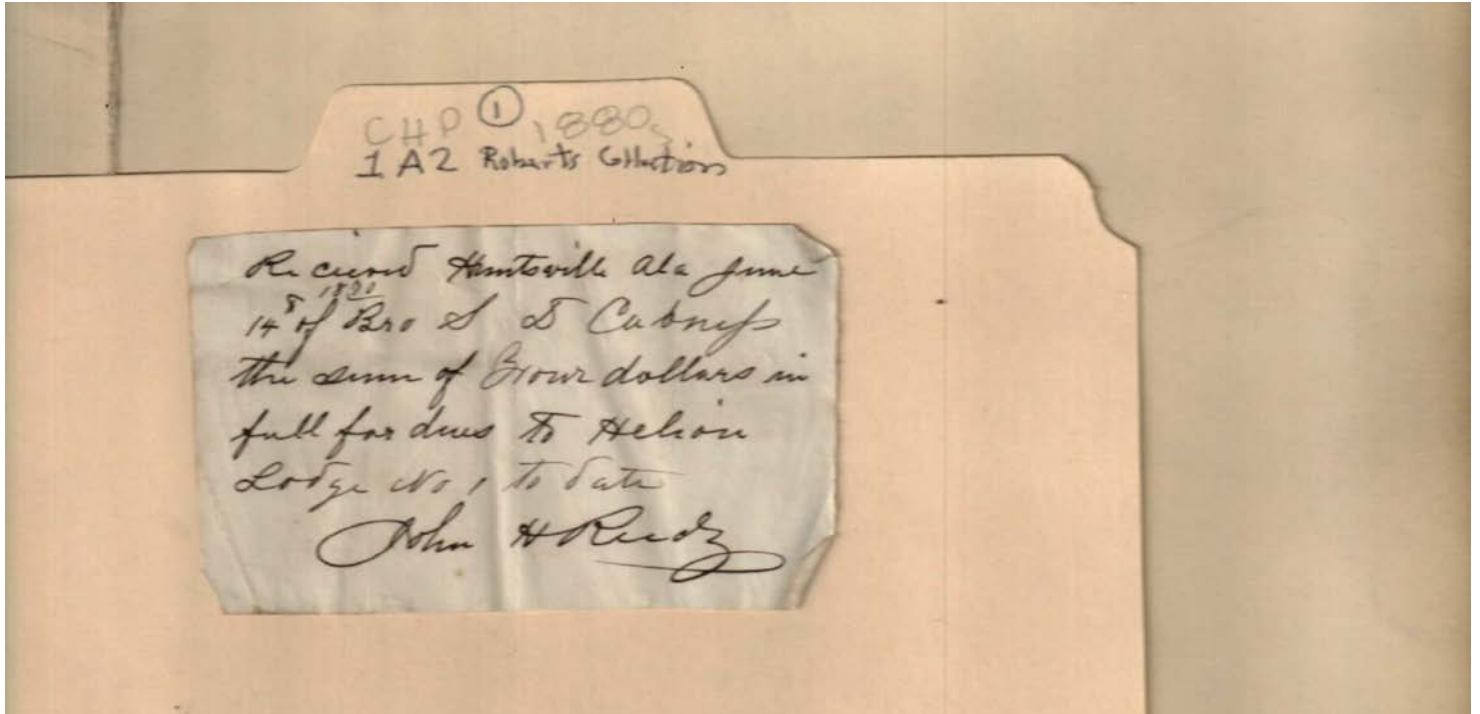 CHP ① 1880s
1A2 Roberts Collection
Recieved Huntsville Ala June
1880
14th of Bro S D Cabness
the sum of Four dollars in
full for dues to Helion
Lodge No 1 to date
John H